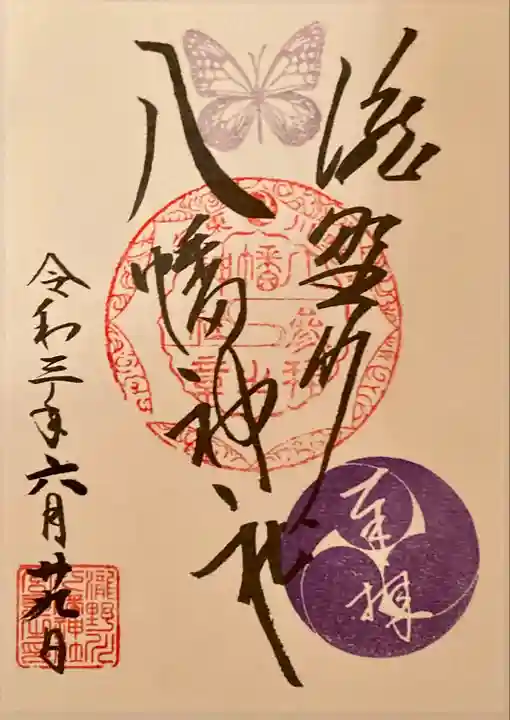 滝野川
八幡神社
奉拝
令和三年六月廿九日